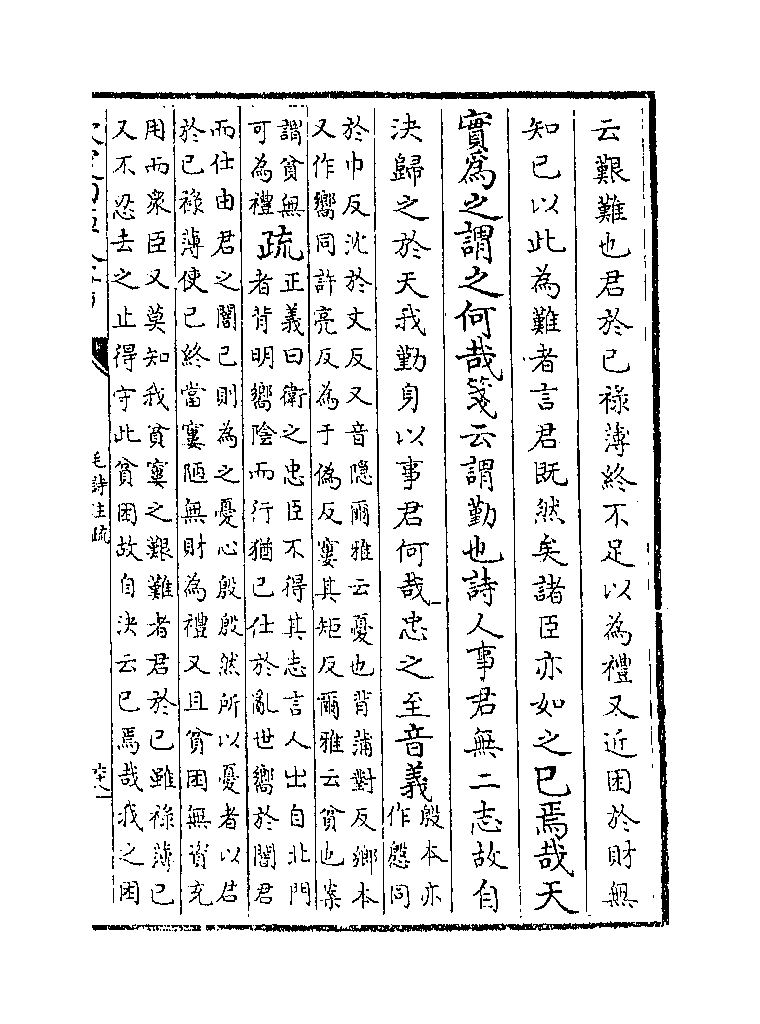 云艱難也君於已祿薄終不足以為禮又近困於財無
知已以此為難者言君既然矣諸臣亦如之已焉哉天
實爲之謂之何哉箋云謂勤也詩人事君無二志故自
決歸之於天我勤身以事君何哉忠之至音義
殷本亦
作慇同
於巾反沈於文反又音隱爾雅云憂也背蒲對反鄉本
又作嚮同許亮反為于偽反窶其矩反爾雅云貧也案
謂貧無
可為禮
疏
正義曰衛之忠臣不得其志言人出自北門
者背明嚮陰而行猶已仕於亂世嚮於闇君
而仕由君之闇已則為之憂心殷殷然所以憂者以君
於已祿薄使已終當窶陋無財為禮又且貧困無資充
用而衆臣又莫知我貧窶之艱難者君於已雖祿薄已
又不忍去之止得守此貧困故自決云已焉哉我之困
毛詩注疏